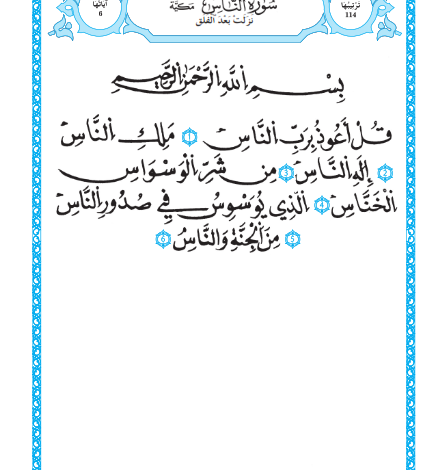 آياتها 6 سُورَةُ النَّاسِ مَكِّيَّة ترتيبها 114
نزلت بعد الفلق
بِسْمِ اللَّهِ الرَّحْمَنِ الرَّحِيمِ
قُلْ أَعُوذُ بِرَبِّ النَّاسِ 1 مَلِكِ النَّاسِ
2 إِلَهِ النَّاسِ 3 مِن شَرِّ الْوَسْوَاسِ
الْخَنَّاسِ 4 الَّذِي يُوَسْوِسُ فِي صُدُورِ النَّاسِ
5 مِنَ الْجِنَّةِ وَالنَّاسِ 6